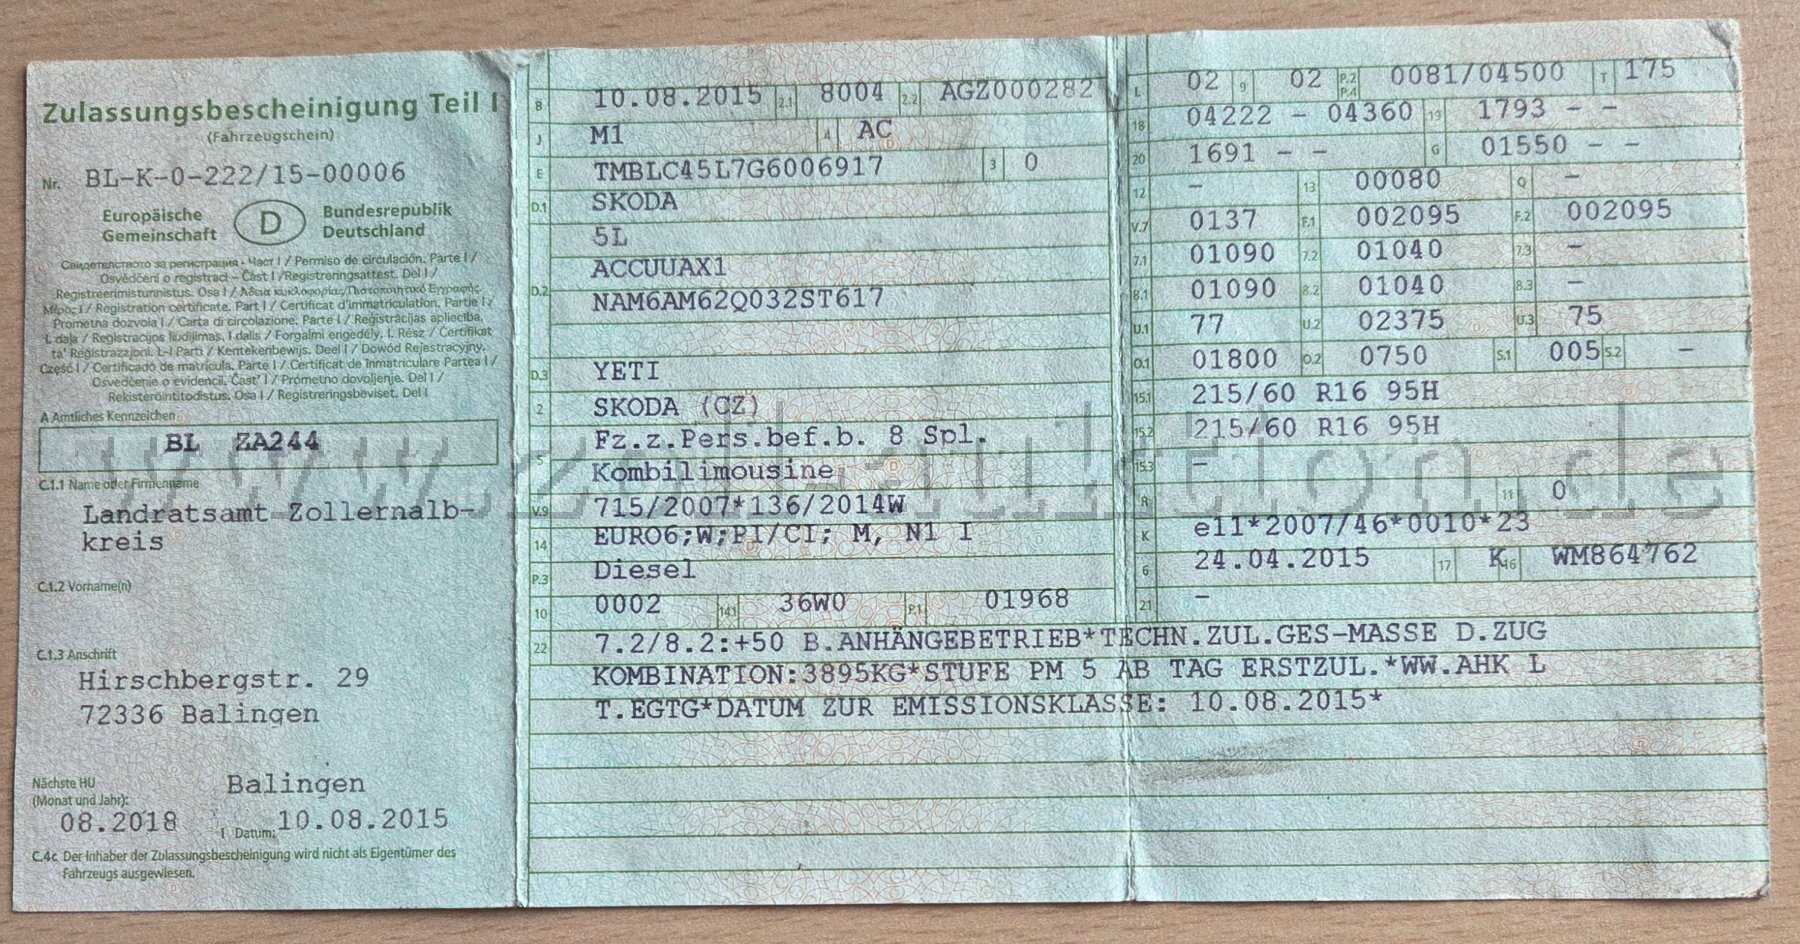 Zulassungsbescheinigung Teil I
(Fahrzeugschein)
Nr. BL-K-0-222/15-00006
Europäische Gemeinschaft D Bundesrepublik Deutschland
Свидетелството за регистрация - Част I / Permiso de circulación. Parte I /
Osvědčení o registraci – Část I / Registreringsattest. Del I /
Registreerimistunnistus. Osa I / Άδεια κυκλοφορίας/Πιστοποιητικό Εγγραφής.
Μέρος I / Registration certificate. Part I / Certificat d'immatriculation. Partie I /
Prometna dozvola I / Carta di circolazione. Parte I / Reģistrācijas apliecība.
I. daļa / Registracijos liudijimas. I dalis / Forgalmi engedély. I. Rész / Ċertifikat
ta' Reġistrazzjoni. L-I Parti / Kentekenbewijs. Deel I / Dowód Rejestracyjny.
Część I / Certificado de matrícula. Parte I / Certificat de înmatriculare Partea I /
Osvedčenie o evidencii. Časť I / Prometno dovoljenje. Del I /
Rekisteröintitodistus. Osa I / Registreringsbeviset. Del I
A Amtliches Kennzeichen
BL ZA244
C.1.1 Name oder Firmenname
Landratsamt Zollernalb-
kreis
C.1.2 Vorname(n)
C.1.3 Anschrift
Hirschbergstr. 29
72336 Balingen
Nächste HU
(Monat und Jahr):
08.2018
Balingen
I Datum: 10.08.2015
C.4c Der Inhaber der Zulassungsbescheinigung wird nicht als Eigentümer des
Fahrzeugs ausgewiesen.
B 10.08.2015 2.1 8004 2.2 AGZ000282
J M1 4 AC
E TMBLC45L7G6006917 3 0
D.1 SKODA
5L
D.2 ACCUUAX1
NAM6AM62Q032ST617
D.3 YETI
2 SKODA (CZ)
5 Fz.z.Pers.bef.b. 8 Spl.
Kombilimousine
V.9 715/2007*136/2014W
14 EURO6;W;PI/CI; M, N1 I
P.3 Diesel
10 0002 14.1 36W0 P.1 01968
L 02 9 02 P.2 P.4 0081/04500 T 175
18 04222 - 04360 19 1793 - -
20 1691 - - G 01550 - -
12 - 13 00080 Q -
V.7 0137 F.1 002095 F.2 002095
7.1 01090 7.2 01040 7.3 -
8.1 01090 8.2 01040 8.3 -
U.1 77 U.2 02375 U.3 75
O.1 01800 O.2 0750 S.1 005 S.2 -
15.1 215/60 R16 95H
15.2 215/60 R16 95H
15.3 -
R 11 0
K e11*2007/46*0010*23
6 24.04.2015 17 K 16 WM864762
21 -
22 7.2/8.2:+50 B.ANHÄNGEBETRIEB*TECHN.ZUL.GES-MASSE D.ZUG
KOMBINATION:3895KG*STUFE PM 5 AB TAG ERSTZUL.*WW.AHK L
T.EGTG*DATUM ZUR EMISSIONSKLASSE: 10.08.2015*
www.zoll-auktion.de